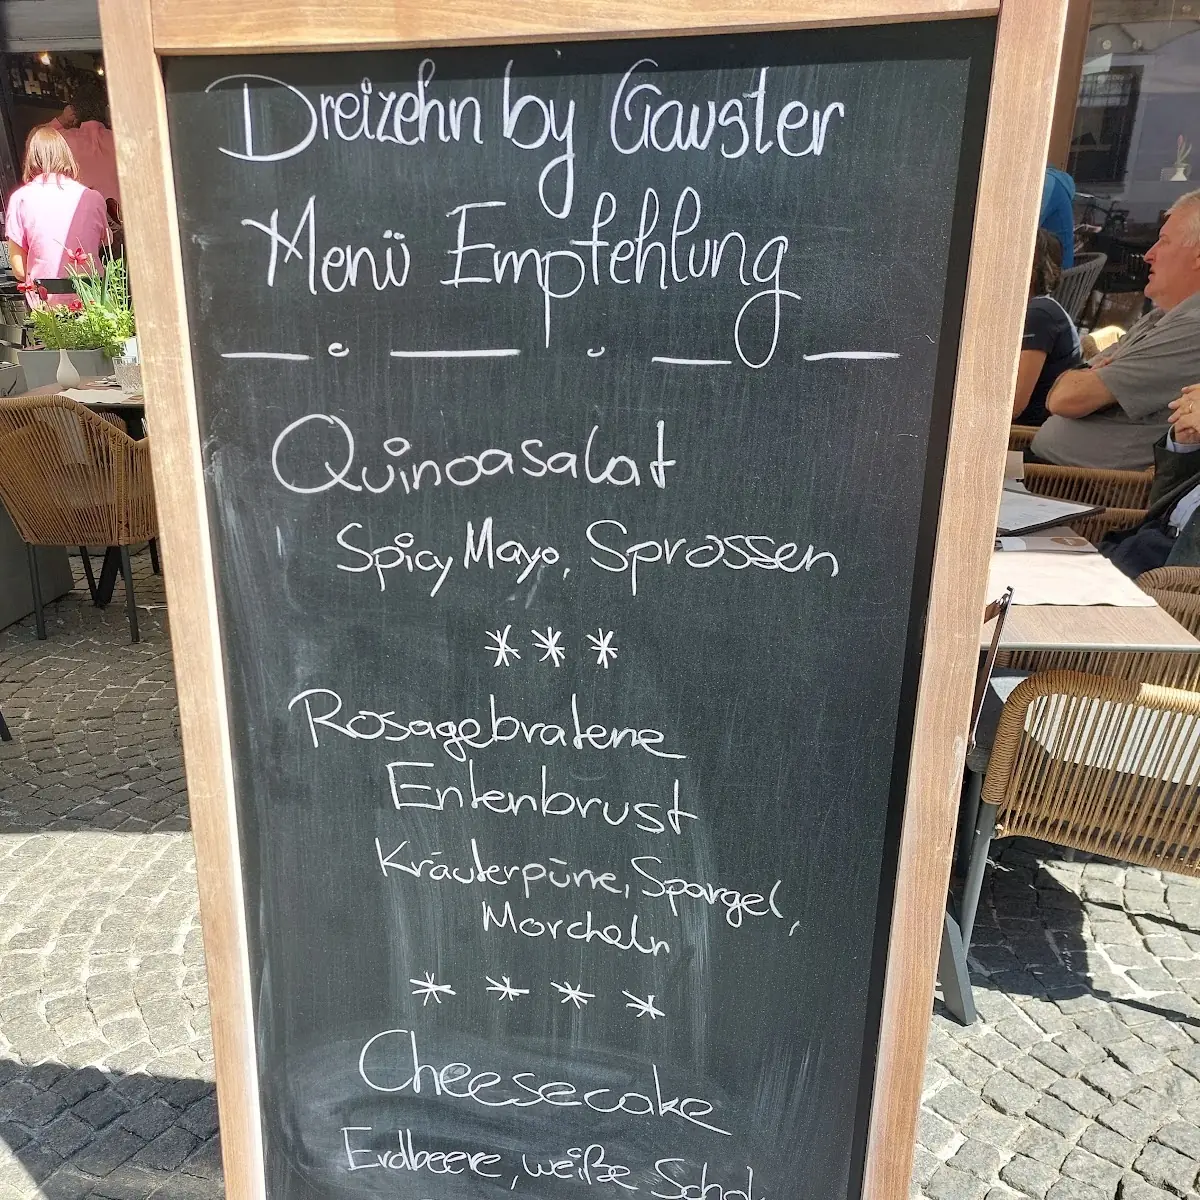 Dreizehn by Gauster
Menü Empfehlung
Quinoasalat
Spicy Mayo, Sprossen
***
Rosagebratene
Entenbrust
Kräuterpüree, Spargel,
Morcheln
****
Cheesecake
Erdbeere, weiße Schok